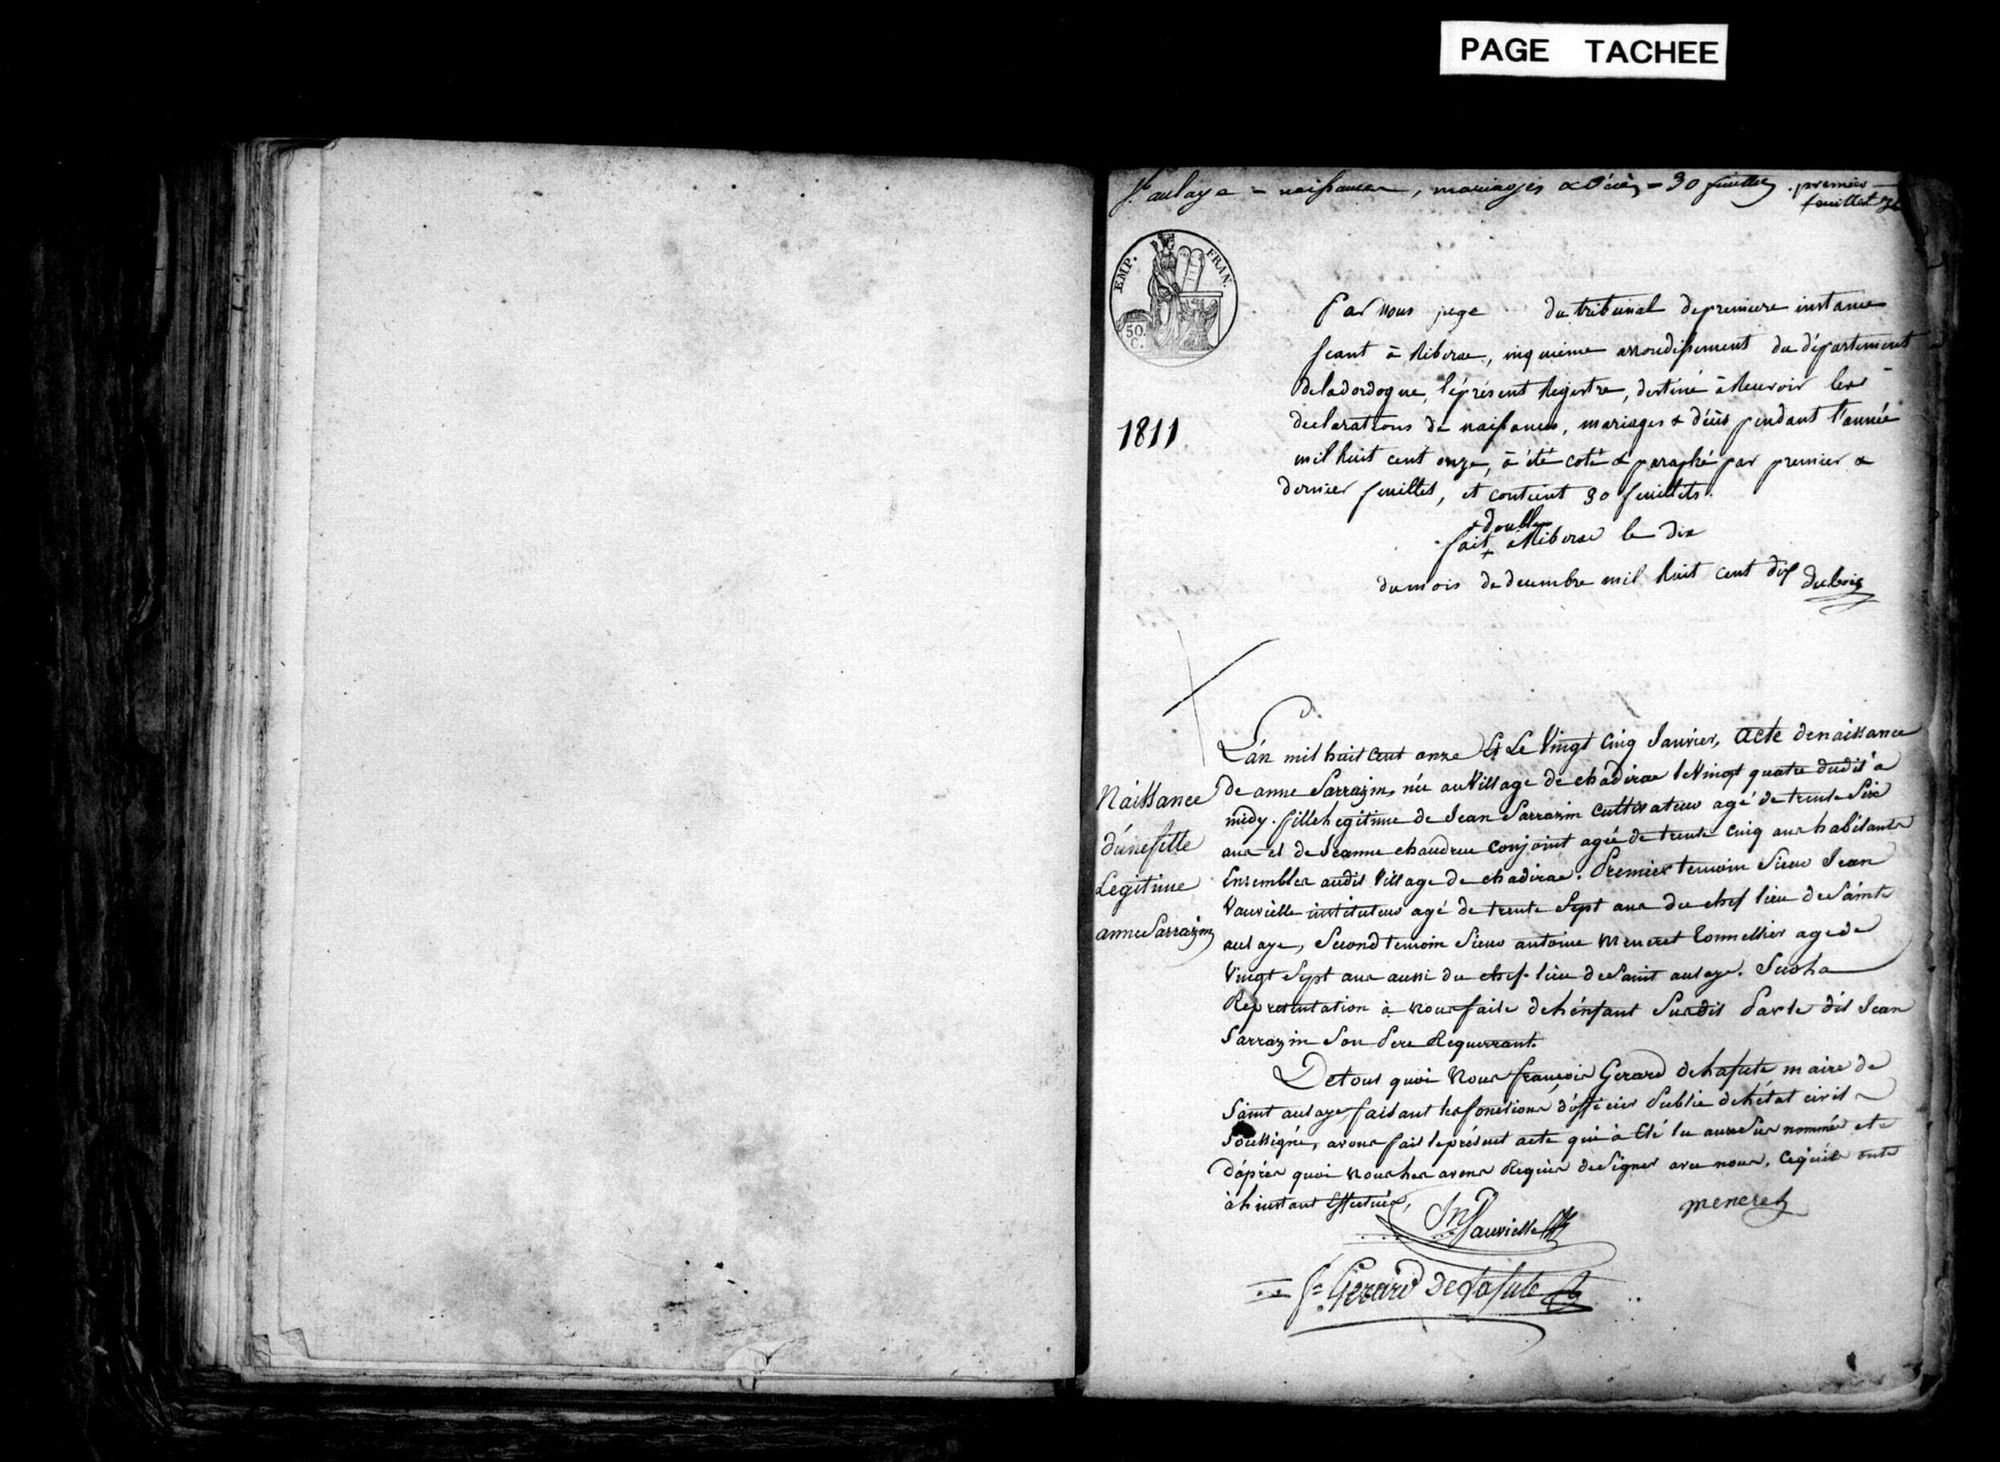 PAGE TACHEE
St aulaye = naissances, mariages & décès = 30 feuillets . premier
feuillet
EMP. FRAN.
50.
C.
1811
Par nous juge du tribunal de premiere instance
séant à Riberac, cinquieme arrondissement du département
de la dordogne, le présent Registre, destiné à Recevoir les
declarations de naissances, mariages & décès pendant l'année
mil huit cent onze, à été coté & paraphé par premier &
dernier feuillet, et contient 30 feuillets.
+ double
fait + a Riberac le dix
du mois de decembre mil huit cent dix dubois
Naissance
d'une fille
Legitime
anne Sarrazin
L'an mil huit cent onze Et Le Vingt cinq Janvier, Acte de naissance
de anne Sarrazin, née au Village de chadirac le Vingt quatre dudit a
midy. fille Legitime de Jean Sarrazin cultivateur agé de trente Six
ans et de Jeanne chaudrue conjoint agée de trente cinq ans habitants
Ensembles audit Village de chadirac. Premier temoin Sieur Jean
Vauvielle instituteur agé de trente Sept ans du chef lieu de Sainte
aulaye, Second temoin Sieur antoine Meneret Tonnellier age de
Vingt Sept ans aussi du chef-lieu de Saint aulaye. Sur la
Representation à nous faite de L'énfant Susdit Par le dit Jean
Sarrazin Son Pere Requerrant.
De tout quoi Nous françois Gerard de Lafute maire de
Saint aulaye faisant les fonctions d'officier Public de L'état civil
Soussigné, avons fait le présent acte qui à Eté lu aux Sus nommés et
d'áprés quoi nous Les avons Requis de Signer avec nous, ce qu'ils ont
à L'instant Effectuée,
meneret
Jn Vauvielle
fs Gerard de Lafute